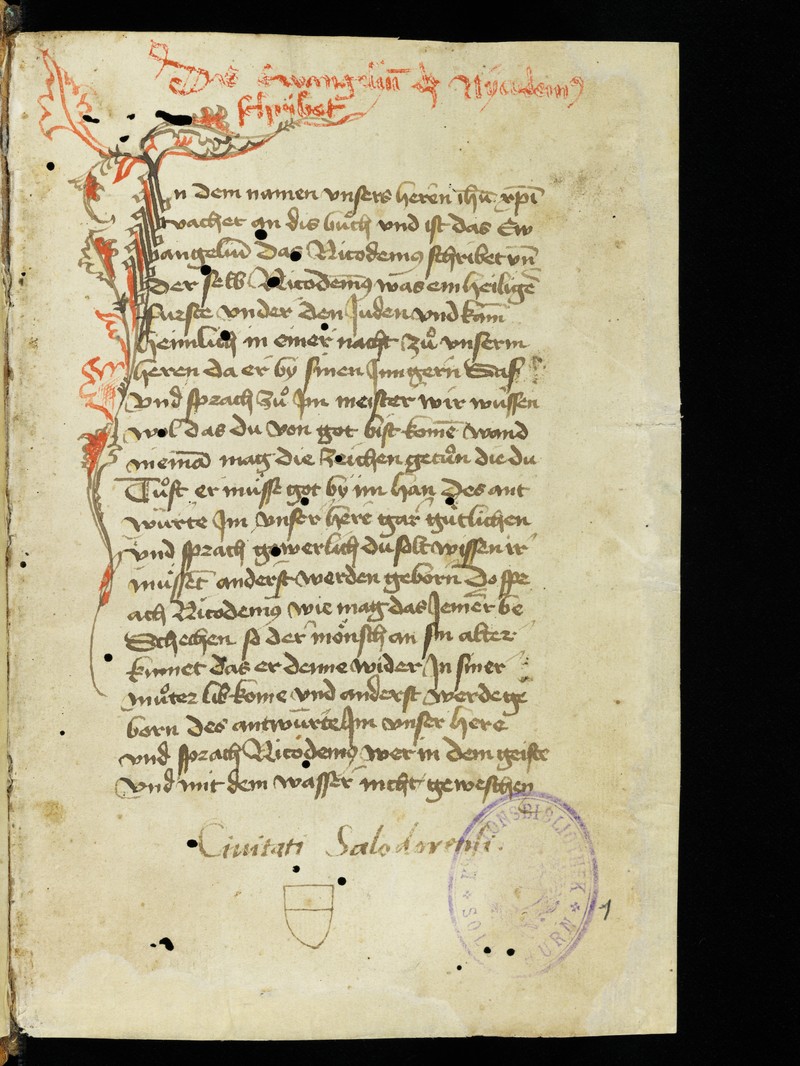 Dis Ewangeliū dz Nycodemꝰ
schribet
In dem namen vnsers heren ihū xp̄i
vachet an dis bůch vnd ist das Ew
vangeliū das Nicodemꝰ schribet vn̄
der selb Nicodemꝰ was ein heilige
furste vnder den Juden vnd kam
heimlich in einer nacht zů vnserm
heren da er by sinen Jungern Sas
vnd sprach zů Jm meister wir wüssen
wol das du von got bist komē wand
niemā mag die zeichen getůn die du
Tůst er müsse got by im han Des ant
würte Jm vnser here gar gütlichen
vnd sprach gewerlich du solt wissen ir
müssēt anderst werden geborn Do spr
ach Nicodemꝰ wie mag das Jemer be
Schechen so der mönsch an sin alter
kumet das er denne wider Jn siner
můter lib kome vnd anderst werde ge
born Des antwürte Jm vnser here
vnd sprach Nicodemꝰ wer in dem geiste
vnd mit dem wasser nicht geweschen
Civitati Salodorensi.
KANTONSBIBLIOTHEK SOLOTHURN
1